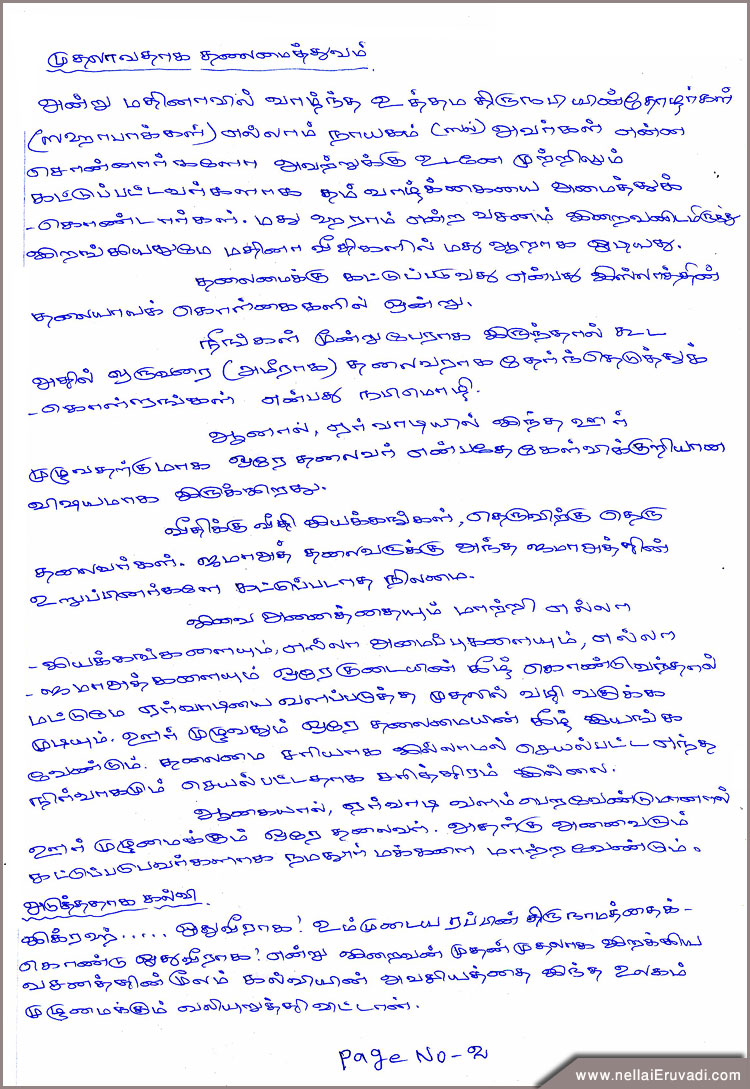 முதலாவதாக தலைமைத்துவம்
அன்று மதினாவில் வாழ்ந்த உத்தம திருநபியின் தோழர்கள்
(ஸஹாபாக்கள்) எல்லாம் நாயகம் (ஸல்) அவர்கள் என்ன
சொன்னார்களோ அவற்றுக்கு உடனே முற்றிலும்
கட்டுப்பட்டவர்களாக தம் வாழ்க்கையை அமைத்துக்
-கொண்டார்கள். மது ஹராம் என்ற வசனம் இறைவனிடமிருந்து
இறங்கியதுமே மதினா வீதிகளில் மது ஆறாக ஓடியது.
தலைமைக்கு கட்டுப்படுவது என்பது இஸ்லாத்தின்
தலையாயக் கொள்கைகளில் ஒன்று.
நீங்கள் மூன்றுபேராக இருந்தால் கூட
அதில் ஒருவரை (அமீராக) தலைவராக தேர்ந்தெடுத்துக்
-கொள்ளுங்கள் என்பது நபிமொழி.
ஆனால், ஏர்வாடியில் இந்த ஊர்
முழுவதற்குமாக ஒரே தலைவர் என்பதே கேள்விக்குறியான
விஷயமாக இருக்கிறது.
வீதிக்கு வீதி இயக்கங்கள், தெருவிற்கு தெரு
தலைவர்கள். ஜமாஅத் தலைவருக்கு அந்த ஜமாஅத்தின்
உறுப்பினர்களே கட்டுப்படாத நிலமை.
இவை அனைத்தையும் மாற்றி எல்லா
-இயக்கங்களையும், எல்லா அமைப்புகளையும், எல்லா
-ஜமாஅத்களையும் ஒரே குடையின் கீழ் கொண்டுவந்தால்
மட்டுமே ஏர்வாடியை வளப்படுத்த முதலில் வழி வகுக்க
முடியும். ஊர் முழுவதும் ஒரே தலைமையின் கீழ் இயங்க
வேண்டும். தலைமை சரியாக இல்லாமல் செயல்பட்ட எந்த
நிர்வாகமும் செயல்பட்டதாக சரித்திரம் இல்லை.
ஆகையால், ஏர்வாடி வளம்பெறவேண்டுமானால்
ஊர் முழுமைக்கும் ஒரே தலைவர். அதற்கு அனைவரும்
கட்டுப்படுபவர்களாக நமதூர் மக்களை மாற்ற வேண்டும்.
அடுத்ததாக கல்வி.
இக்ரஹ்..... ஓதுவீராக! உம்முடைய ரப்பின் திருநாமத்தைக்-
கொண்டு ஓதுவீராக! என்று இறைவன் முதன் முதலாக இறக்கிய
வசனத்தின் மூலம் கல்வியின் அவசியத்தை இந்த உலகம்
முழுமைக்கும் வலியுறுத்திவிட்டான்.
Page No-2
www.nellaiEruvadi.com